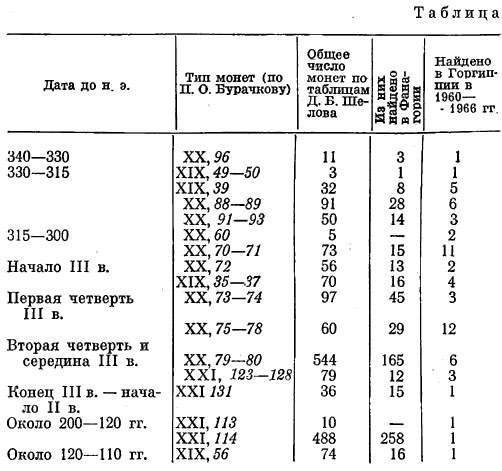 Таблица
Дата до н. э. | Тип монет (по П. О. Бурачкову) | Общее число монет по таблицам Д. Б. Шелова | Из них найдено в Фанагории | Найдено в Горгиппии в 1960—-1966 гг.
340—330 | XX, 96 | 11 | 3 | 1
330—315 | XIX, 49—50 | 3 | 1 | 1
XIX, 39 | 32 | 8 | 5
XX, 88—89 | 91 | 28 | 6
XX, 91—93 | 50 | 14 | 3
315—300 | XX, 60 | 5 | — | 2
XX, 70—71 | 73 | 15 | 11
Начало III в. | XX, 72 | 56 | 13 | 2
XIX, 35—37 | 70 | 16 | 4
Первая четверть | XX, 73—74 | 97 | 45 | 3
III в.
XX, 75—78 | 60 | 29 | 12
Вторая четверть и
середина III в. | XX, 79—80 | 544 | 165 | 6
XXI, 123—128 | 79 | 12 | 3
Конец III в. — нача- | XXI 131 | 36 | 15 | 1
ло II в.
Около 200—120 гг. | XXI, 113 | 10 | — | 1
XXI, 114 | 488 | 258 | 1
Около 120—110 гг. | XIX, 56 | 74 | 16 | 1